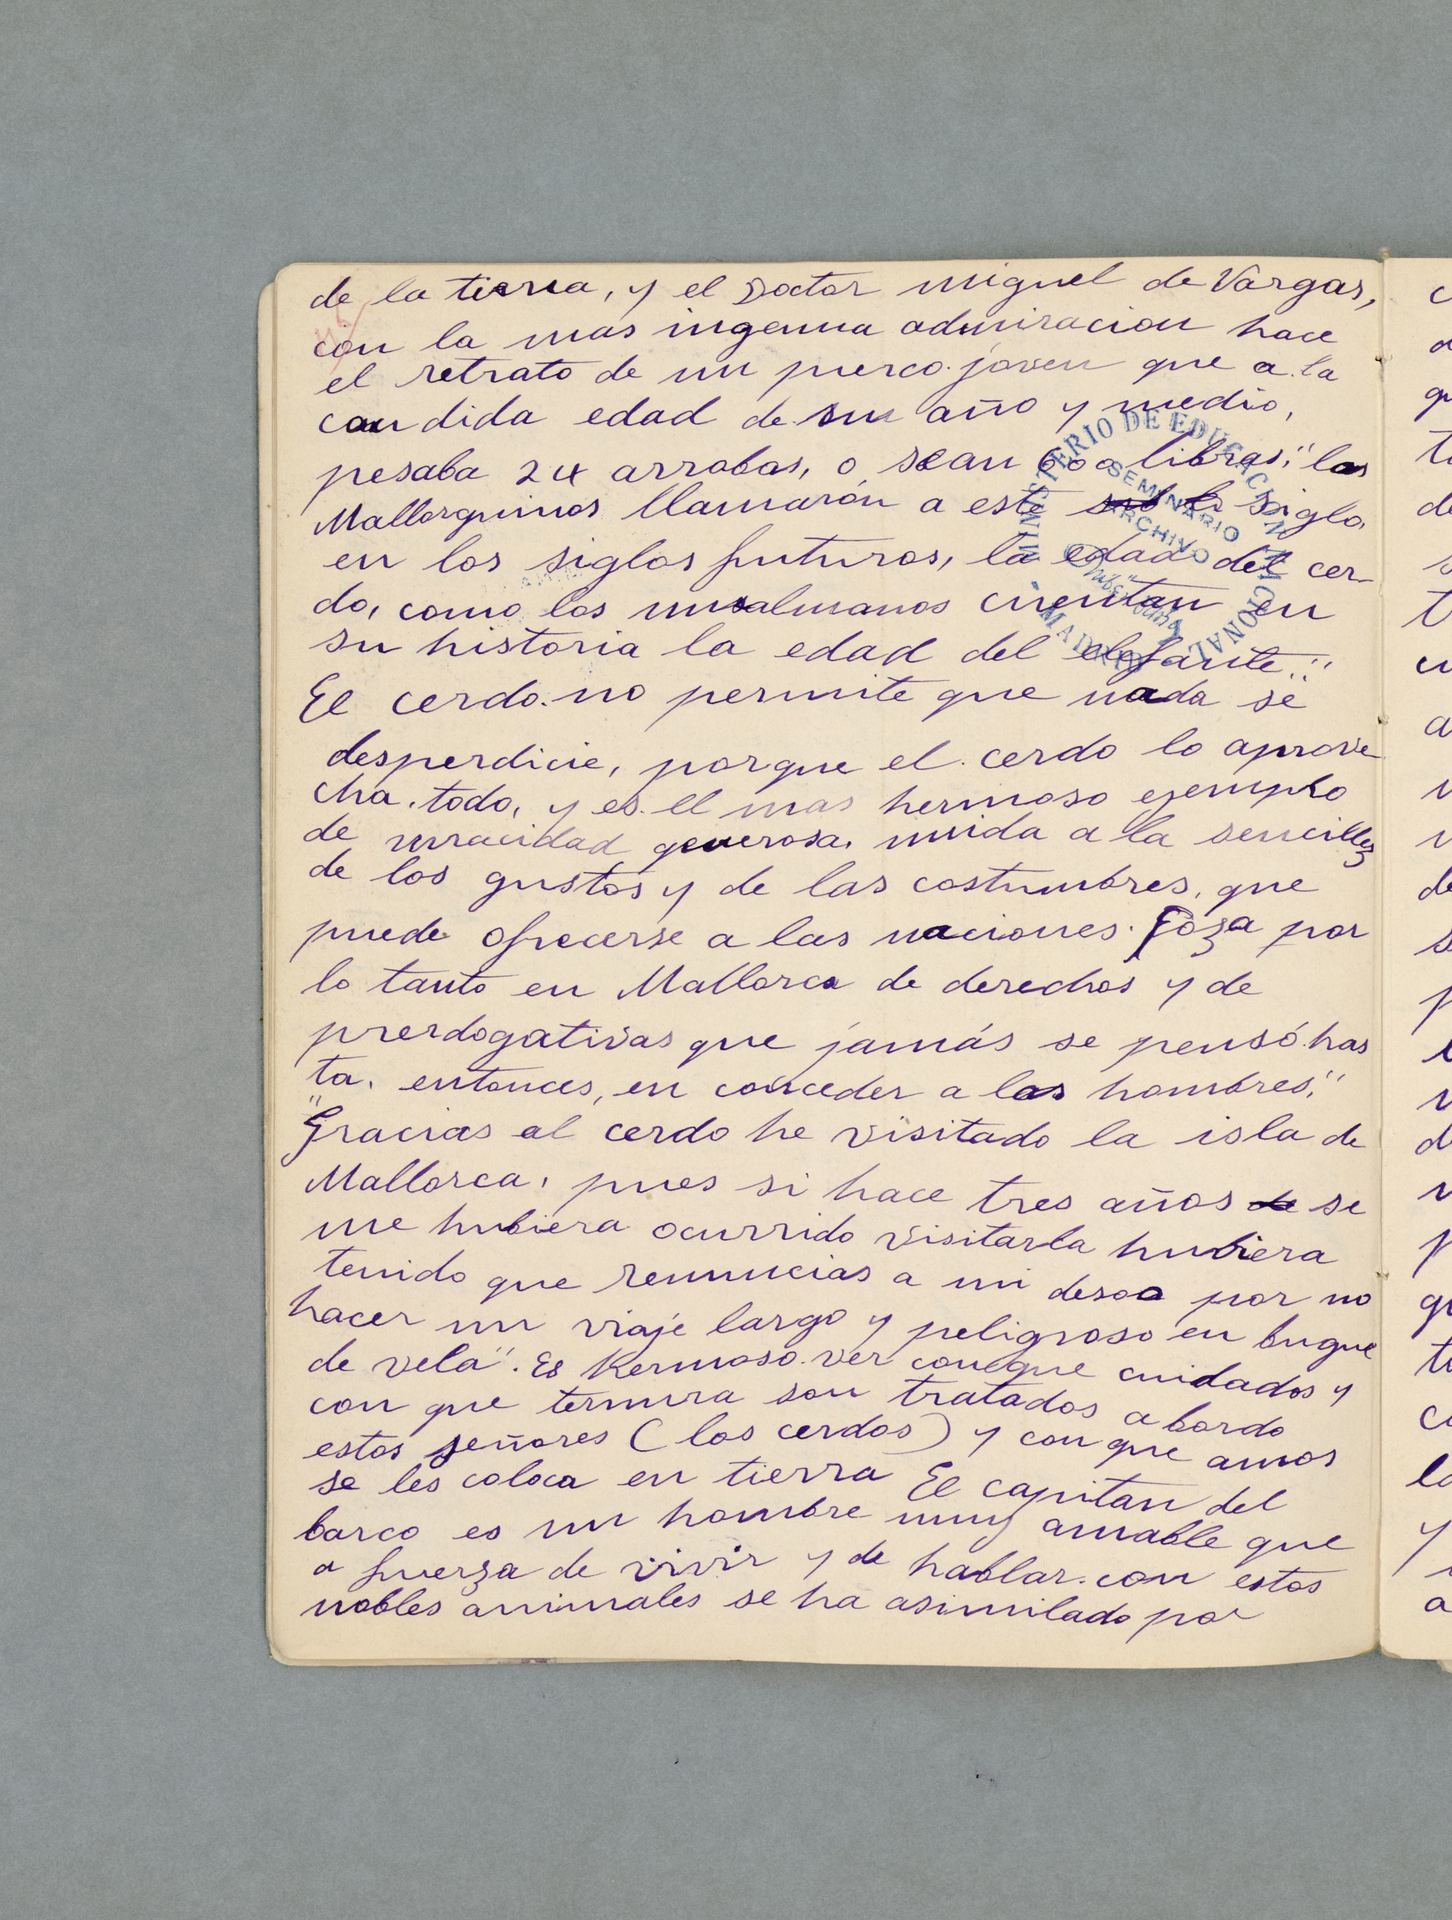 de la tierra, y el Doctor Miguel de Vargas,
con la mas ingenua admiracion hace
el retrato de un puerco joven que a la
candida edad de un año y medio,
pesaba 24 arrobas, o sean 600 libras; "los
Mallorquinos llamarón a este siglo,
en los siglos futuros, la edad del cer-
do, como los musalmanos cuentan en
su historia la edad del elefante."
El cerdo no permite que nada se
desperdicie, porque el cerdo lo aprove
cha todo, y es el mas hermoso ejemplo
de voracidad generosa, unida a la sencillez
de los gustos y de las costumbres, que
puede ofrecerse a las naciones. Goza por
lo tanto en Mallorca de derechos y de
prerdogativas que jamás se pensó has
ta, entonces, en conceder a los hombres,"
"Gracias al cerdo he visitado la isla de
Mallorca, pues si hace tres años se
me hubiera ocurrido visitarla hubiera
tenido que renuncias a mi deseo por no
hacer un viaje largo y peligroso en buque
de vela". Es hermoso ver con que cuidados y
con que ternura son tratados abordo
estos señores (los cerdos) y con que amos
se les coloca en tierra El capitan del
barco es un hombre muy amable que
a fuerza de vivir y de hablar con estos
nobles animales se ha asimilado por
MINISTERIO DE EDUCACION NACIONAL
SEMINARIO
ARCHIVO
MADRID